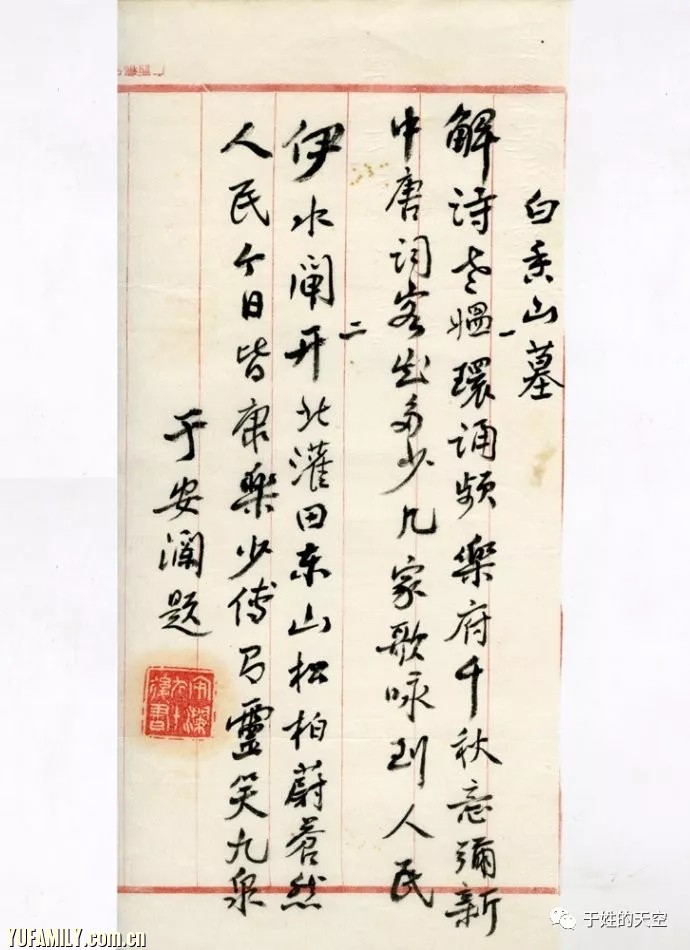 白香山墓
一
解诗老媼環诵频樂府千秋意彌新
中唐词客出多少几家歌咏到人民
二
伊水闸开北灌田东山松柏蔚蒼然
人民今日皆康樂少傅有靈笑九泉
于安澜题
安瀾九十後書
YUFAMILY.com.cn
于姓的天空